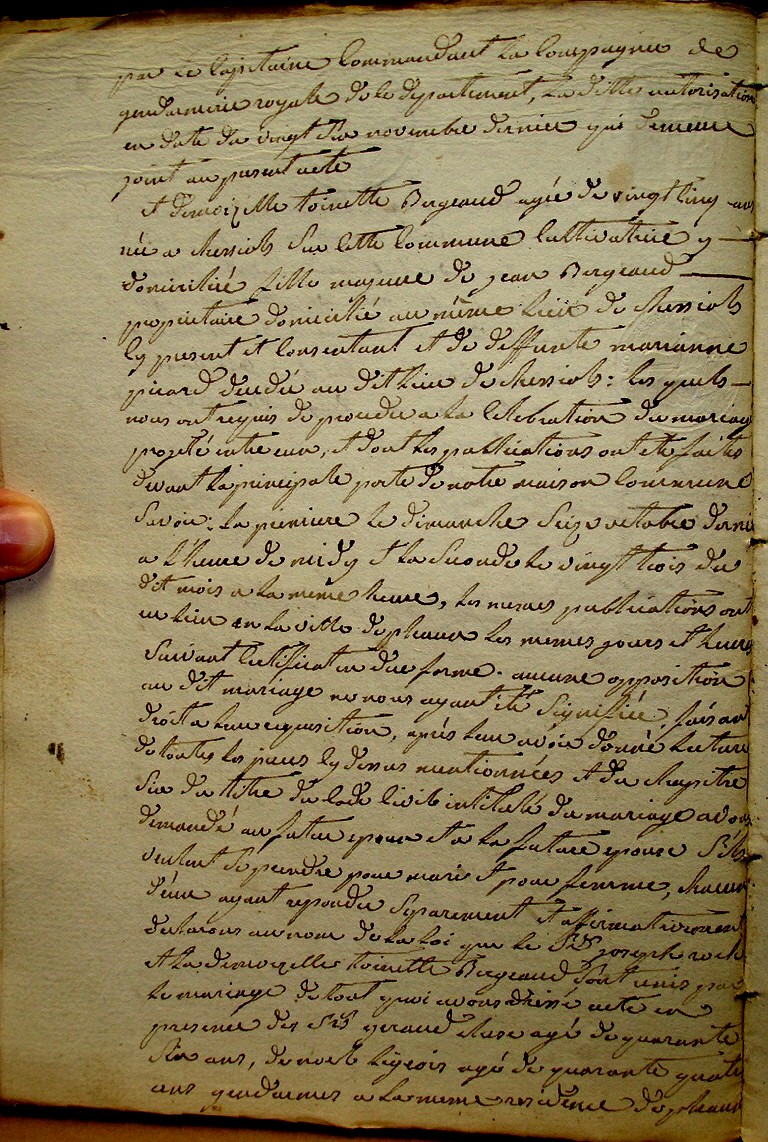 par le Capitaine Commandant la Compagnie de
gendarmerie royale de le departement, la ditte autorisation
en date du vingt six novembre dernier qui demeure
joint au present acte
et demoizelle toinette Bergeaud agée de vingt Cinq ans
née a Cette Commune Cultivatrice y
domiciliée fille majeure de jean Bergeaud
propriétaire domicilié au même lieu de
Cy present et Consentant et de deffunte marianne
picard décédée au dit lieu de : les quels
nous ont requis de proceder a la Celebration du mariage
projeté entre eux, et dont les publications ont eté faites
devant la principale porte de notre maison Commune
Savoir: la premiere le dimanche Seize octobre dernier
a l'heure de midy et la Seconde le vingt trois du
dit mois a la même heure, les memes publications ont
eu lieu en la ville de pleaux les memes jours et heures
Suivant Certificat en due forme. aucune opposition
au dit mariage ne nous ayant été Signifiée, faisant
droit a leur requisition, après leur avoir donné lecture
de toutes les pieces Cy dessus mentionnées et du chapitre
Six du titre du Code Civil intitulé du mariage avons
demandé au futur epoux et a la future epouse S'ils
veulent Se prendre pour mari et pour femme, chacun
d'eux ayant repondu Separement et affirmativement
declarons au nom de la loi que le joseph
et la demoizelle toinette Bergeaud Sont unis par
le mariage de tout quoi avons dréssé acte en
presence des geraud agé de quarante
Six ans, de noel agé de quarante quatre
ans gendarmes a la meme residence de pleaux